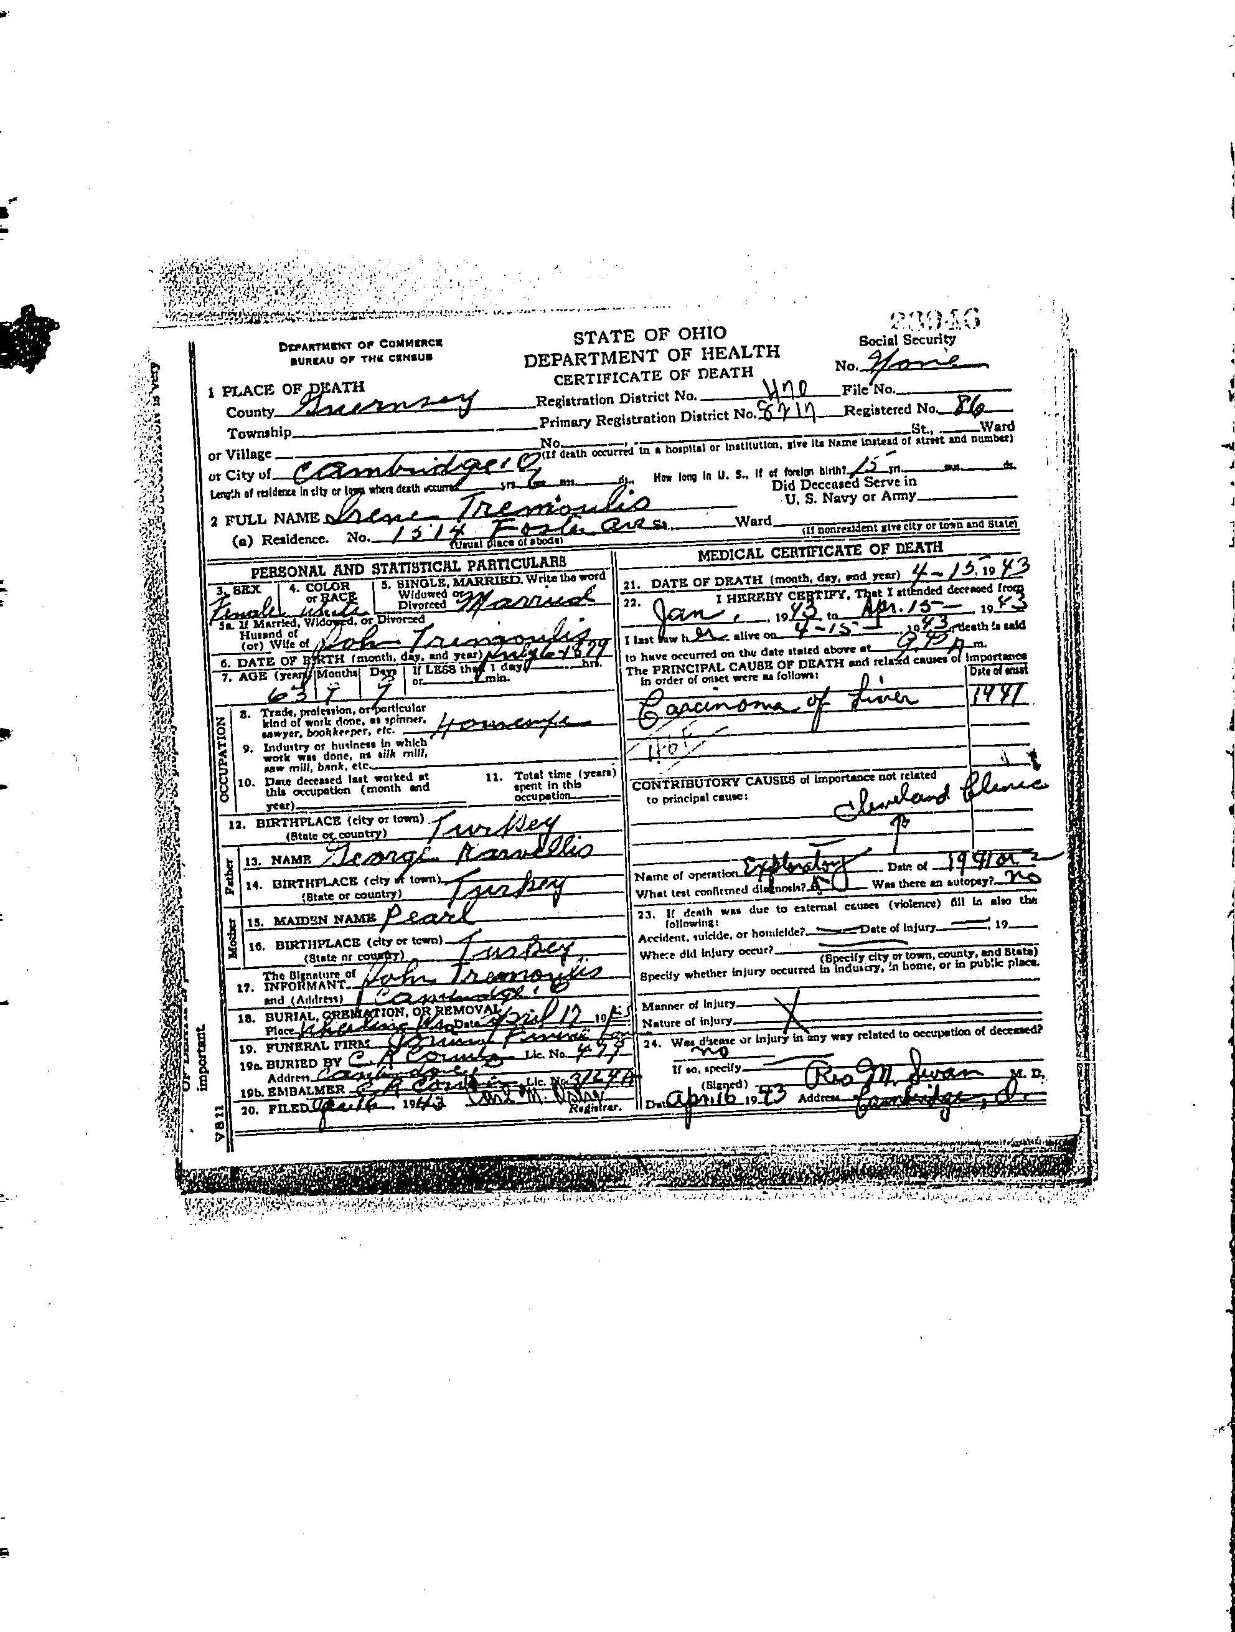 23946
DEPARTMENT OF COMMERCE
BUREAU OF THE CENSUS
STATE OF OHIO
DEPARTMENT OF HEALTH
CERTIFICATE OF DEATH
Social Security
No. None
1 PLACE OF DEATH
County Guernsey
Registration District No. 470 File No.
Township
Primary Registration District No. 8217 Registered No. 86
or Village No. St., Ward
(If death occurred in a hospital or institution, give its Name instead of street and number)
or City of Cambridge, O.
Length of residence in city or town where death occurred yrs. 6 mos. ds. How long in U. S., if of foreign birth? 15 yrs. mos. ds.
Did Deceased Serve in
U. S. Navy or Army
2 FULL NAME Irene Tremoulis
(a) Residence. No. 1514 Foster Ave St., Ward
(Usual place of abode) (If nonresident give city or town and State)
PERSONAL AND STATISTICAL PARTICULARS
3. SEX 4. COLOR or RACE 5. SINGLE, MARRIED, Write the word
Widowed or
Divorced Married
Female White
5a. If Married, Widowed, or Divorced
Husand of
(or) Wife of John Tremoulis
6. DATE OF BIRTH (month, day, and year) July 6 1879
7. AGE (year) Months Days If LESS than 1 day hrs.
or min.
63 9 9
OCCUPATION
8. Trade, profession, or particular
kind of work done, as spinner,
sawyer, bookkeeper, etc. Housewife
9. Industry or business in which
work was done, as silk mill,
saw mill, bank, etc.
10. Date deceased last worked at
this occupation (month and
year)
11. Total time (years)
spent in this
occupation
12. BIRTHPLACE (city or town) Turkey
(State or country)
Father
13. NAME George Karvellis
14. BIRTHPLACE (city or town) Turkey
(State or country)
Mother
15. MAIDEN NAME Pearl
16. BIRTHPLACE (city or town) Turkey
(State or country)
The Signature of
17. INFORMANT John Tremoulis
and (Address) Cambridge, O
18. BURIAL, CREMATION, OR REMOVAL
Place Wheeling W. Va Date April 17 19
19. FUNERAL FIRM
19a. BURIED BY C. A. Lic. No. 477
Address Cambridge
19b. EMBALMER C A Lic. No. 3124A
20. FILED Apr 16 1943 Carl M. Registrar.
MEDICAL CERTIFICATE OF DEATH
21. DATE OF DEATH (month, day, and year) 4-15, 1943
22. I HEREBY CERTIFY, That I attended deceased from
Jan, 1943 to Apr. 15 1943
I last saw her alive on 4-15 1943, death is said
to have occurred on the date stated above at A. m.
The PRINCIPAL CAUSE OF DEATH and related causes of importance
in order of onset were as follows: Date of onset
Carcinoma of Liver 1941
CONTRIBUTORY CAUSES of importance not related
to principal cause:
Cleveland Clinic
Name of operation Exploratory Date of 1941 or 2
What test confirmed diagnosis? Was there an autopsy? no
23. If death was due to external causes (violence) fill in also the
following:
Accident, suicide, or homicide? Date of injury , 19
Where did injury occur?
(Specify city or town, county, and State)
Specify whether injury occurred in industry, in home, or in public place.
Manner of Injury
Nature of injury
24. Was disease or injury in any way related to occupation of deceased?
no
If so, specify
(Signed) Reo M. Swan M. D.
Date Apr. 16 1943 Address Cambridge, O.
important
VS11